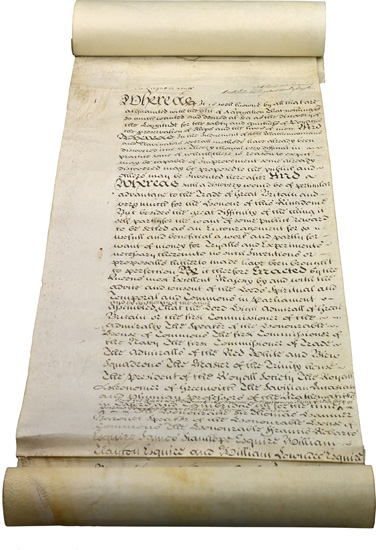 Whereas It is well known by all that are
acquainted with the Art of Navigation That nothing is
so much wanted and desired at Sea as the discovery of
the Longitude for the safety and quickness of Voyages
the preservation of Ships and the lives of men And
Whereas in the Judgement of able Mathematicians
and Navigators several methods have already been
discovered true in Theory though very difficult in
practice some of which there is reason to expect
may be capable of improvement some already
discovered may be proposed to the publick and
others may be Invented hereafter And
Whereas such a discovery would be of particular
advantage to the Trade of Great Britain and
very much for the Honour of this Kingdom
But besides the great difficulty of the thing it
self partly for the want of some publick reward
to be settled as an Encouragement for so
usefull and beneficial a work and partly for
want of money for Tryalls and Experiments
necessary thereunto no such Inventions or
proposalls hitherto made have been brought
to perfection Be it therefore Enacted by the
Queens most Excellent Majesty by and with the
advice and consent of the Lords Spiritual and
Temporal and Commons in Parliament
Assembled That the Lord High Admirall of Great
Britain or the first Commissioner of the
Admiralty The Speaker of the Honourable
House of Commons The first Commissioner of
the Navy The first Commissioner of Trade
The Admiralls of the Red White and Blew
Squadrons The Master of the Trinity House
The President of the Royall Society The Royall
Astronomer of Greenwich The Savilian Lucasian
and Plumian professors of the Mathematicks
Esquire James Stanhope Esquire William
Clayton Esquire and William Lowndes Esquire